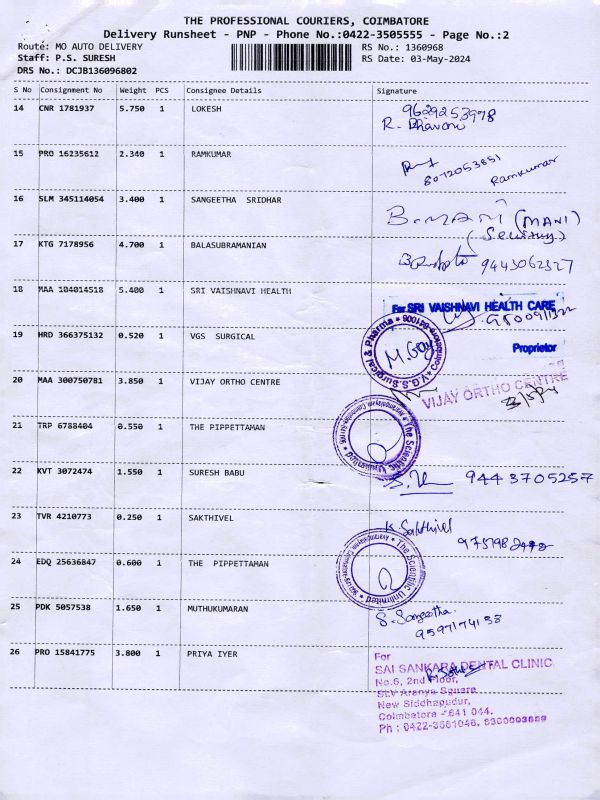 THE PROFESSIONAL COURIERS, COIMBATORE
Delivery Runsheet - PNP - Phone No.:0422-3505555 - Page No.:2
Route: MO AUTO DELIVERY RS No.: 1360968
Staff: P.S. SURESH RS Date: 03-May-2024
DRS No.: DCJB136096802
S No Consignment No Weight PCS Consignee Details Signature
14 CNR 1781937 5.750 1 LOKESH 9629253978
R. Bhavani
15 PRO 16235612 2.340 1 RAMKUMAR
8072053851 Ramkumar
16 SLM 345114054 3.400 1 SANGEETHA SRIDHAR B.MANI (MANI)
17 KTG 7178956 4.700 1 BALASUBRAMANIAN 9443062327
18 MAA 104014518 5.400 1 SRI VAISHNAVI HEALTH
For SRI VAISHNAVI HEALTH CARE
Proprietor
19 HRD 366375132 0.520 1 VGS SURGICAL
V.G.S. Surgical & Pharma
20 MAA 300750781 3.850 1 VIJAY ORTHO CENTRE
VIJAY ORTHO CENTRE
21 TRP 6788404 0.550 1 THE PIPPETTAMAN
The Scientific Unlimited
22 KVT 3072474 1.550 1 SURESH BABU 9443705257
23 TVR 4210773 0.250 1 SAKTHIVEL K. Sakthivel
24 EDQ 25636847 0.600 1 THE PIPPETTAMAN
The Scientific Unlimited
25 PDK 5057538 1.650 1 MUTHUKUMARAN S. Sangeetha
9597174133
26 PRO 15841775 3.800 1 PRIYA IYER
For
SAI SANKARA DENTAL CLINIC
No.6, 2nd Floor,
SLV Aranya Square
New Siddhapudur,
Coimbatore - 641 044.
Ph : 0422-3581046,